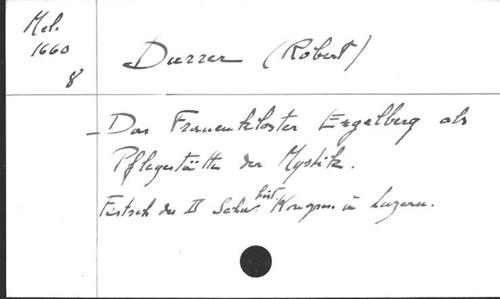 Mel.
1660
8
Durrer (Robert)
- Das Frauenkloster Engelberg als
Pflegestätte der Mystik.
Festsch des II Schw. hist. Kongres. in Luzern.